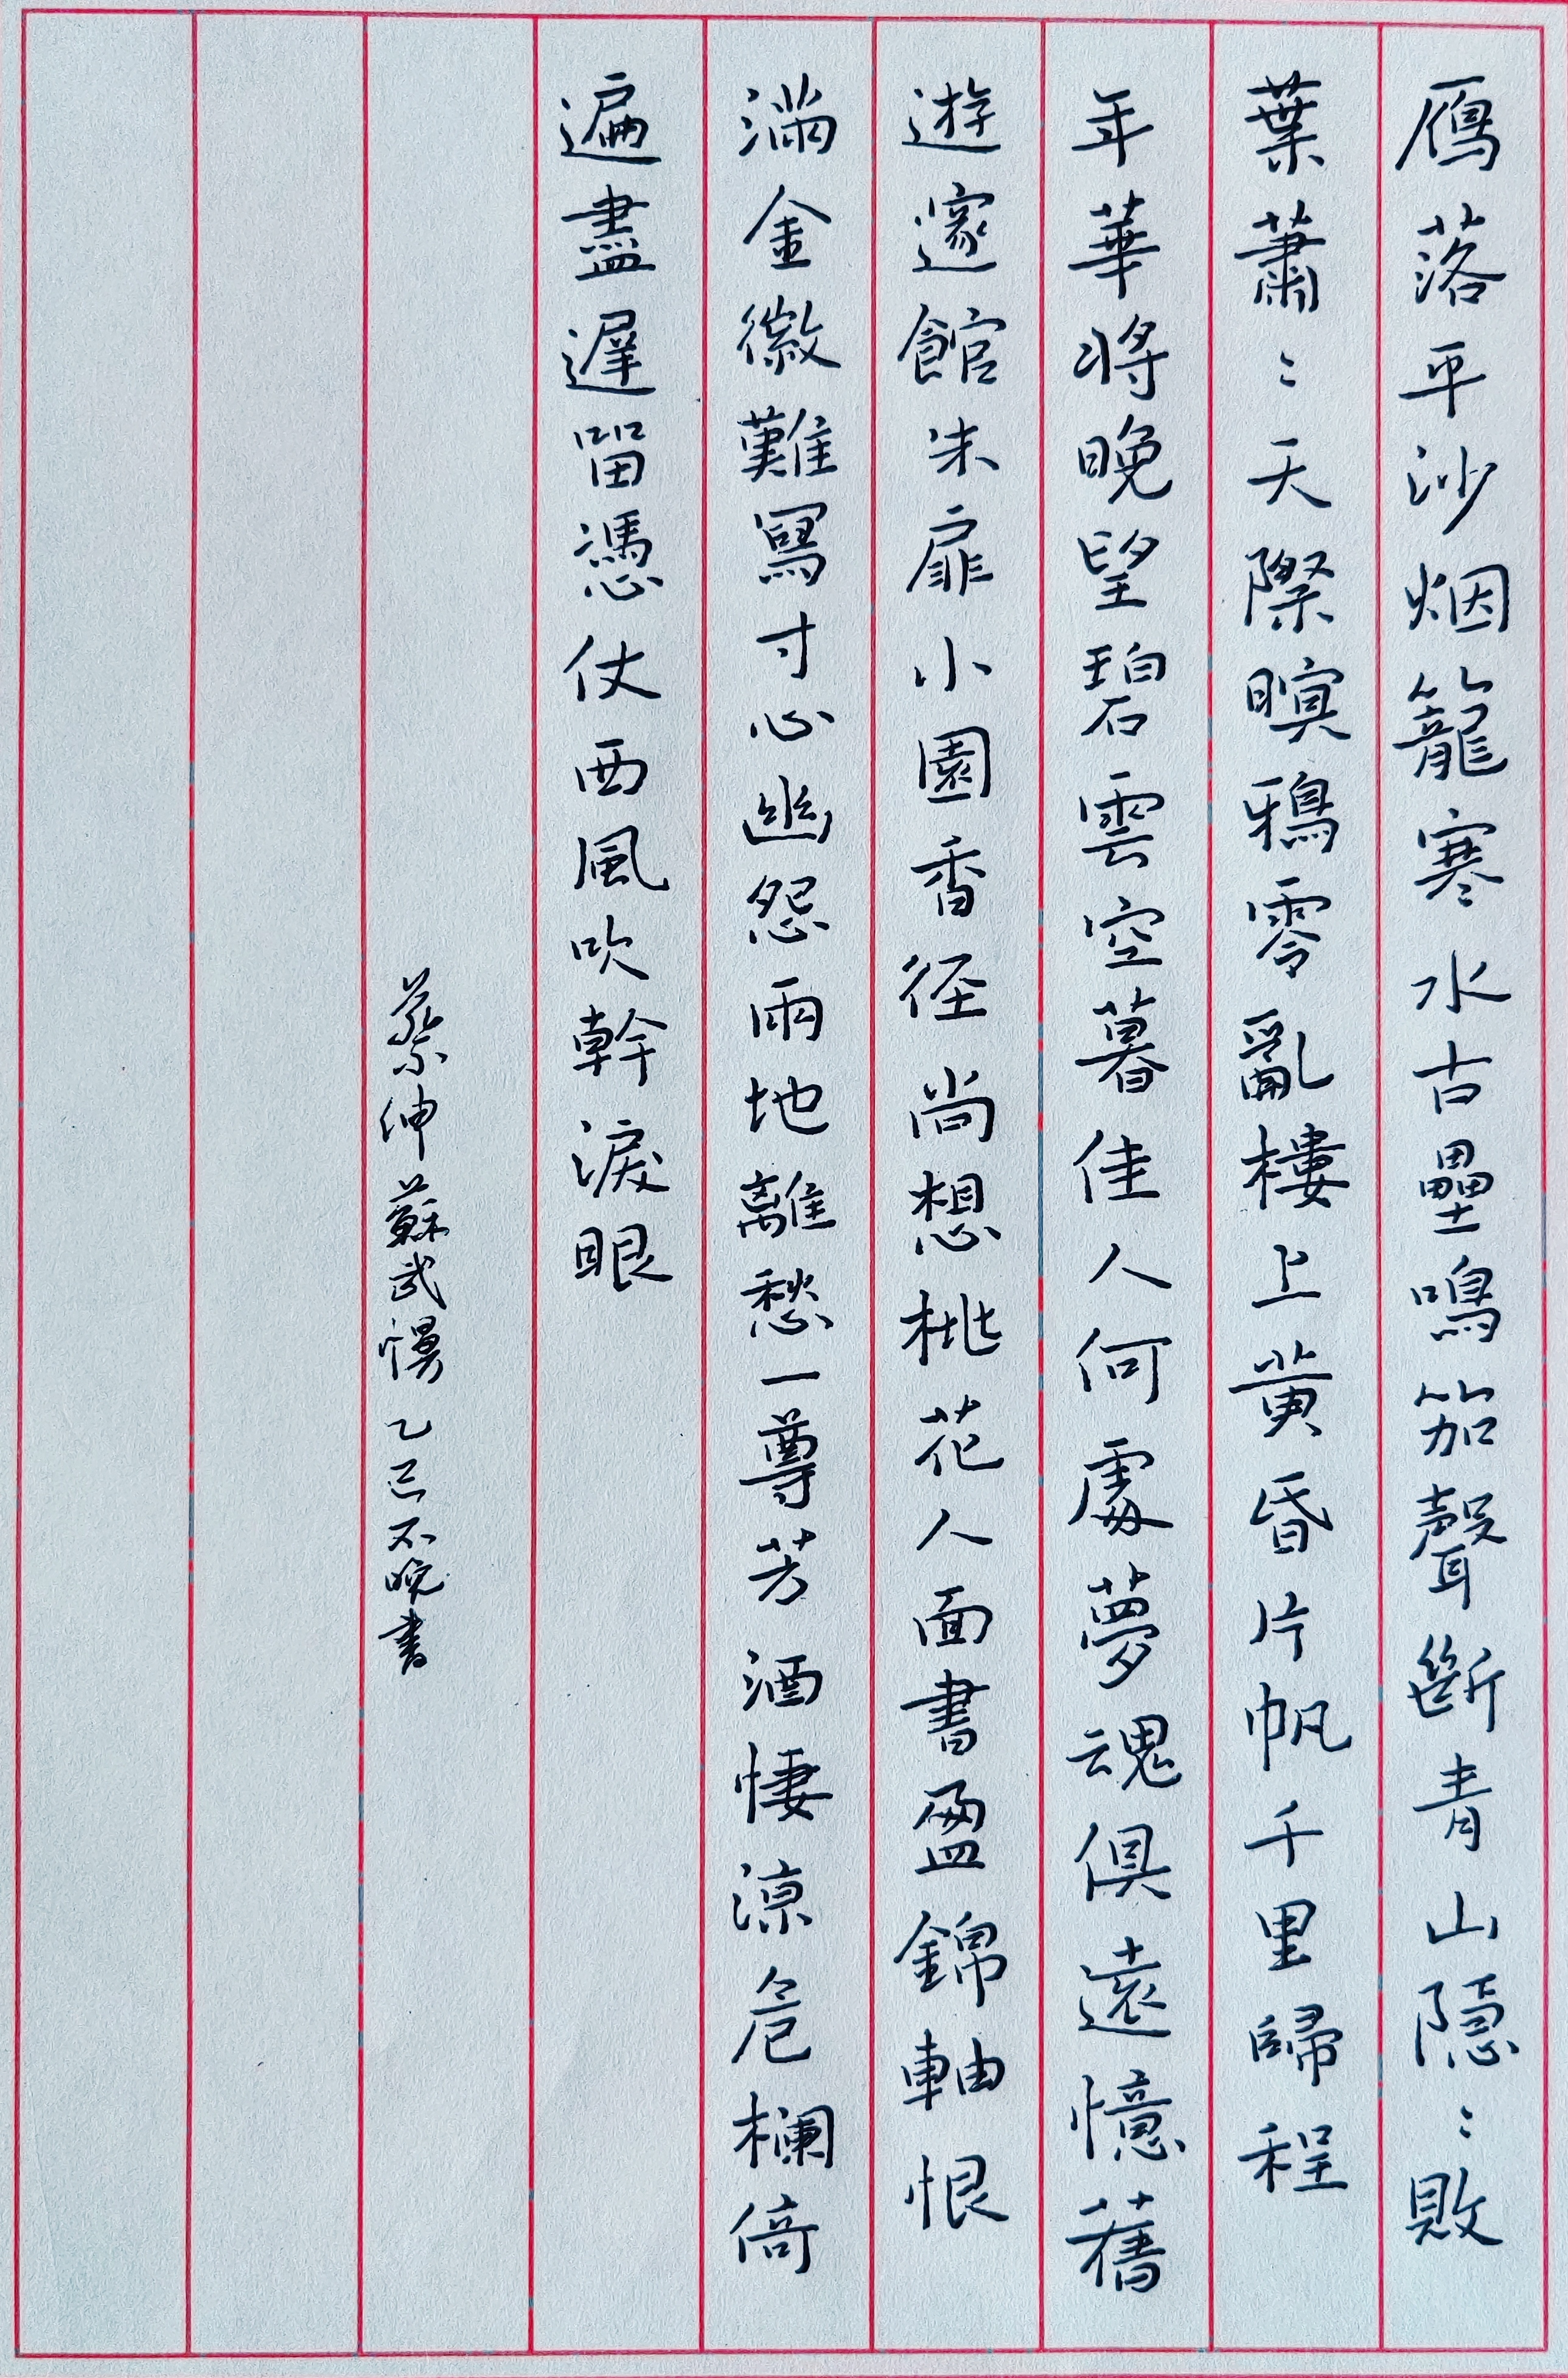 鴈落平沙烟籠寒水古壘鳴笳聲斷青山隱〻敗
葉蕭〻天際暝鴉零亂樓上黄昏片帆千里歸程
年華將晚望碧雲空暮佳人何處夢魂俱遠憶舊
遊邃館朱扉小園香徑尚想桃花人面書盈錦軸恨
滿金徽難寫寸心幽怨兩地離愁一尊芳酒悽涼危欄倚
遍盡遲留憑仗西風吹幹淚眼
蔡伸蘇武慢乙巳不晚書